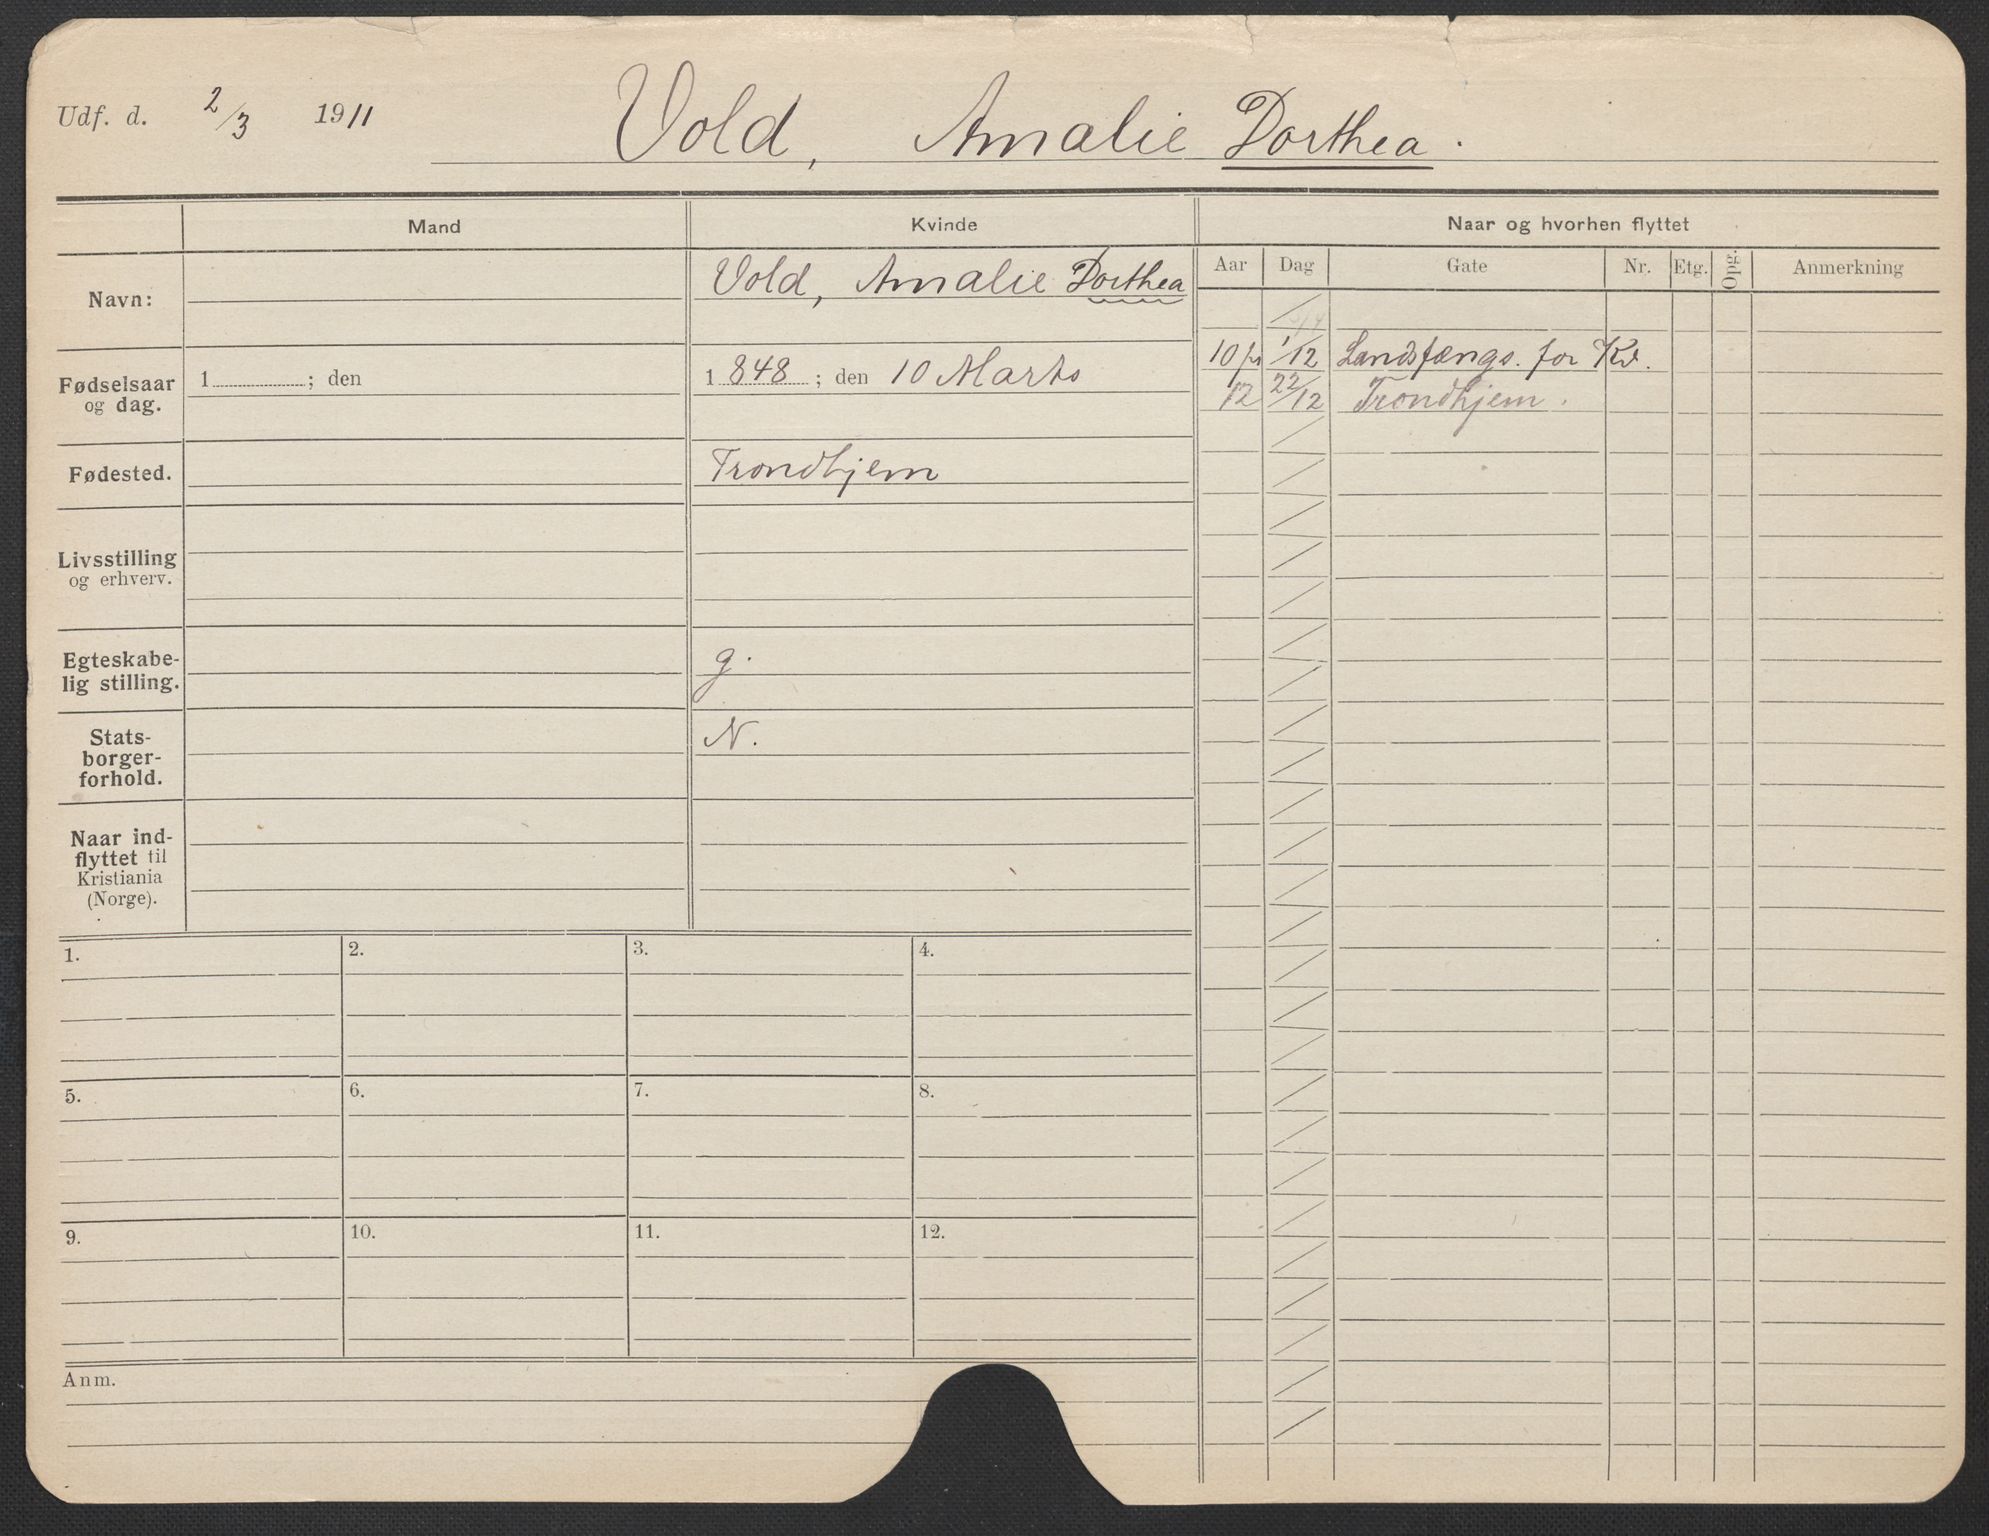 Udf. d. 2/3 1911
Vold, Amalie Dorthea.
Mand
Kvinde
Naar og hvorhen flyttet
Aar Dag Gate Nr. Etg. Opg. Anmerkning
Navn:
Vold, Amalie Dorthea
Fødselsaar
og dag.
1 ; den
1848 ; den 10 Marts
Fødested.
Trondhjem
Livsstilling
og erhverv.
Egteskabe-
lig stilling.
g.
Stats-
borger-
forhold.
N.
Naar ind-
flyttet til
Kristiania
(Norge).
10 1/12 Landsfængs. for Kv.
12 22/12 Trondhjem.
1. 2. 3. 4.
5. 6. 7. 8.
9. 10. 11. 12.
Anm.